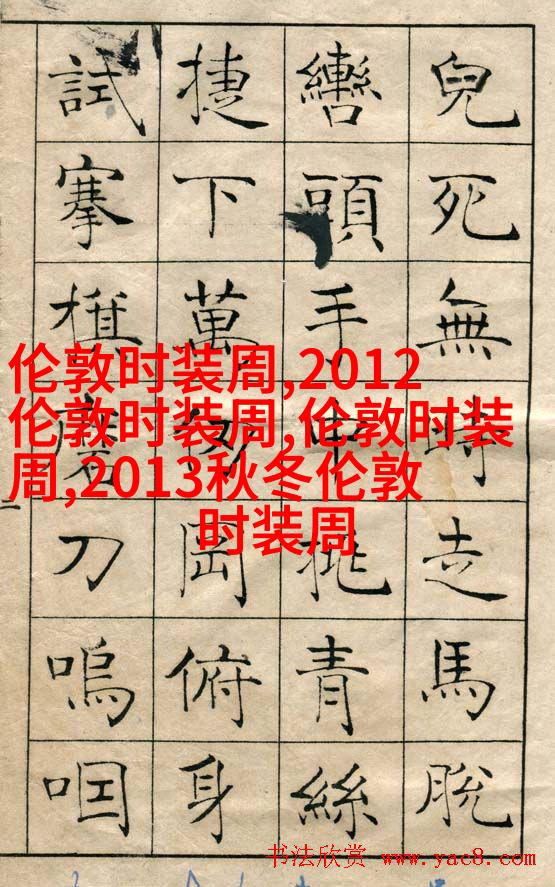 兒死無時走馬脫
轡頭手中挑青絲
捷下萬仞岡俯身
試搴旗磨刀嗚咽
伦敦时装周,2012
伦敦时装周,伦敦时装
周,2013秋冬伦敦
时装周
书法欣赏 www.yac8.com